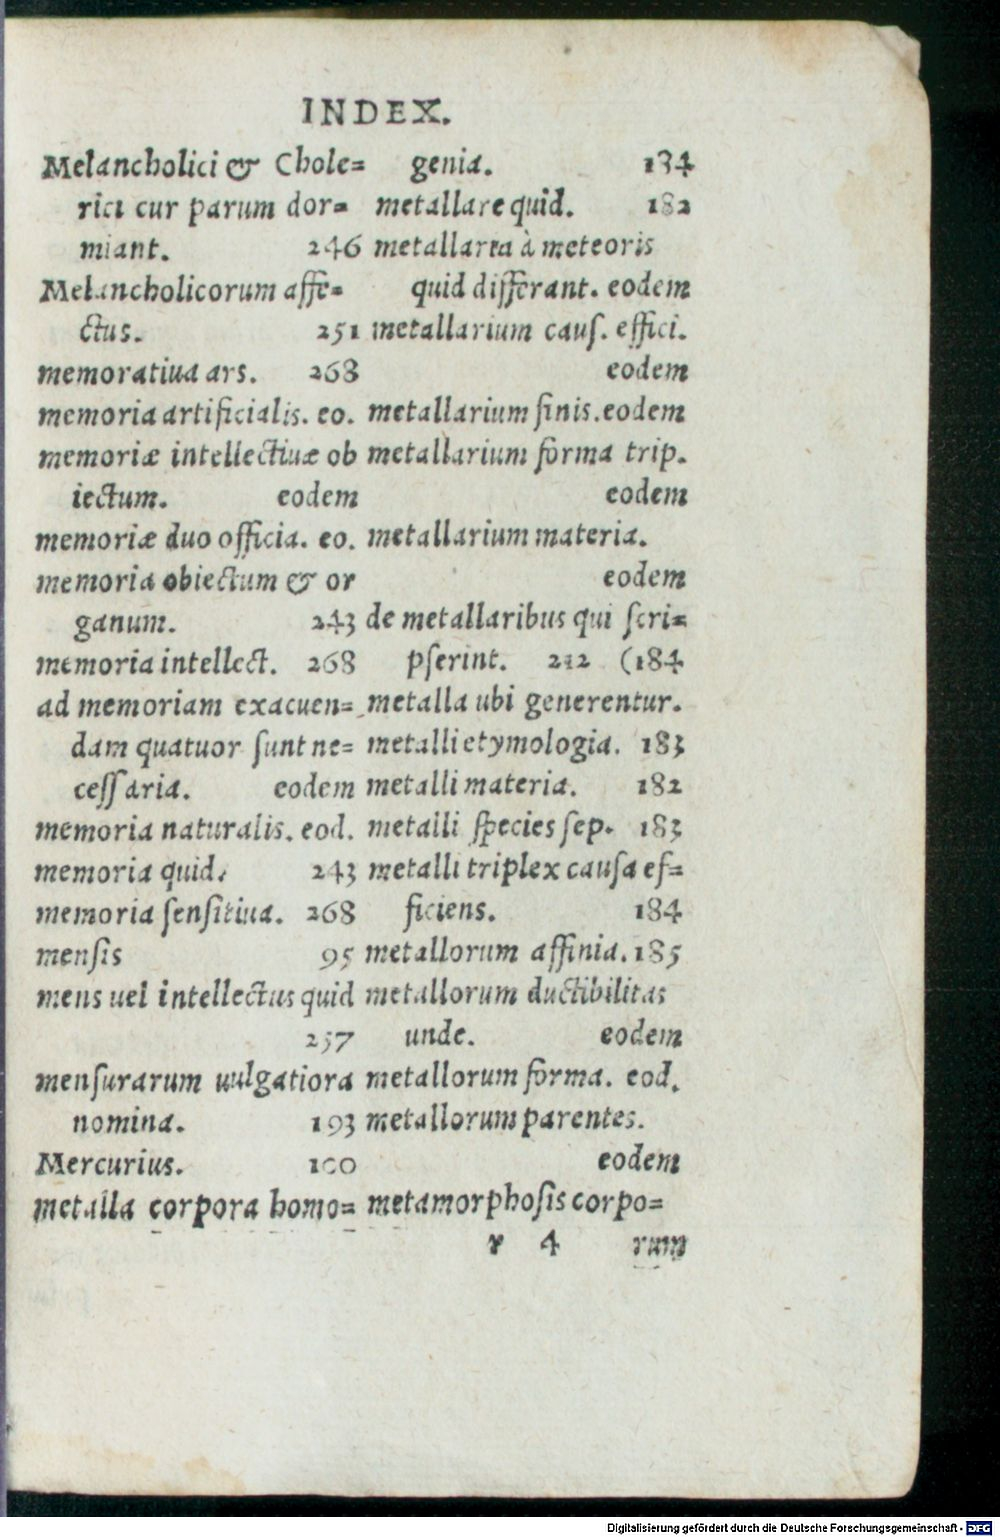 INDEX.
Melancholici & Chole=
rici cur parum dor=
miant. 246
Melancholicorum affe=
ctus. 251
memoratiua ars. 268
memoria artificialis. eo.
memoriæ intellectiuæ ob
iectum. eodem
memoriæ duo officia. eo.
memoria obiectum & or
ganum. 243
memoria intellect. 268
ad memoriam exacuen=
dam quatuor sunt ne=
cessaria. eodem
memoria naturalis. eod.
memoria quid. 243
memoria sensitiua. 268
mensis 95
mens uel intellectus quid
257
mensurarum uulgatiora
nomina. 193
Mercurius. 100
metalla corpora homo=
genia. 184
metallare quid. 182
metallaria à meteoris
quid differant. eodem
metallarium caus. effici.
eodem
metallarium finis. eodem
metallarium forma trip.
eodem
metallarium materia.
eodem
de metallaribus qui scri=
pserint. 212 (184
metalla ubi generentur.
metalli etymologia. 183
metalli materia. 182
metalli species sep. 183
metalli triplex causa ef=
ficiens. 184
metallorum affinia. 185
metallorum ductibilitas
unde. eodem
metallorum forma. eod.
metallorum parentes.
eodem
metamorphosis corpo=
r 4 rum
Digitalisierung gefördert durch die Deutsche Forschungsgemeinschaft - DFG